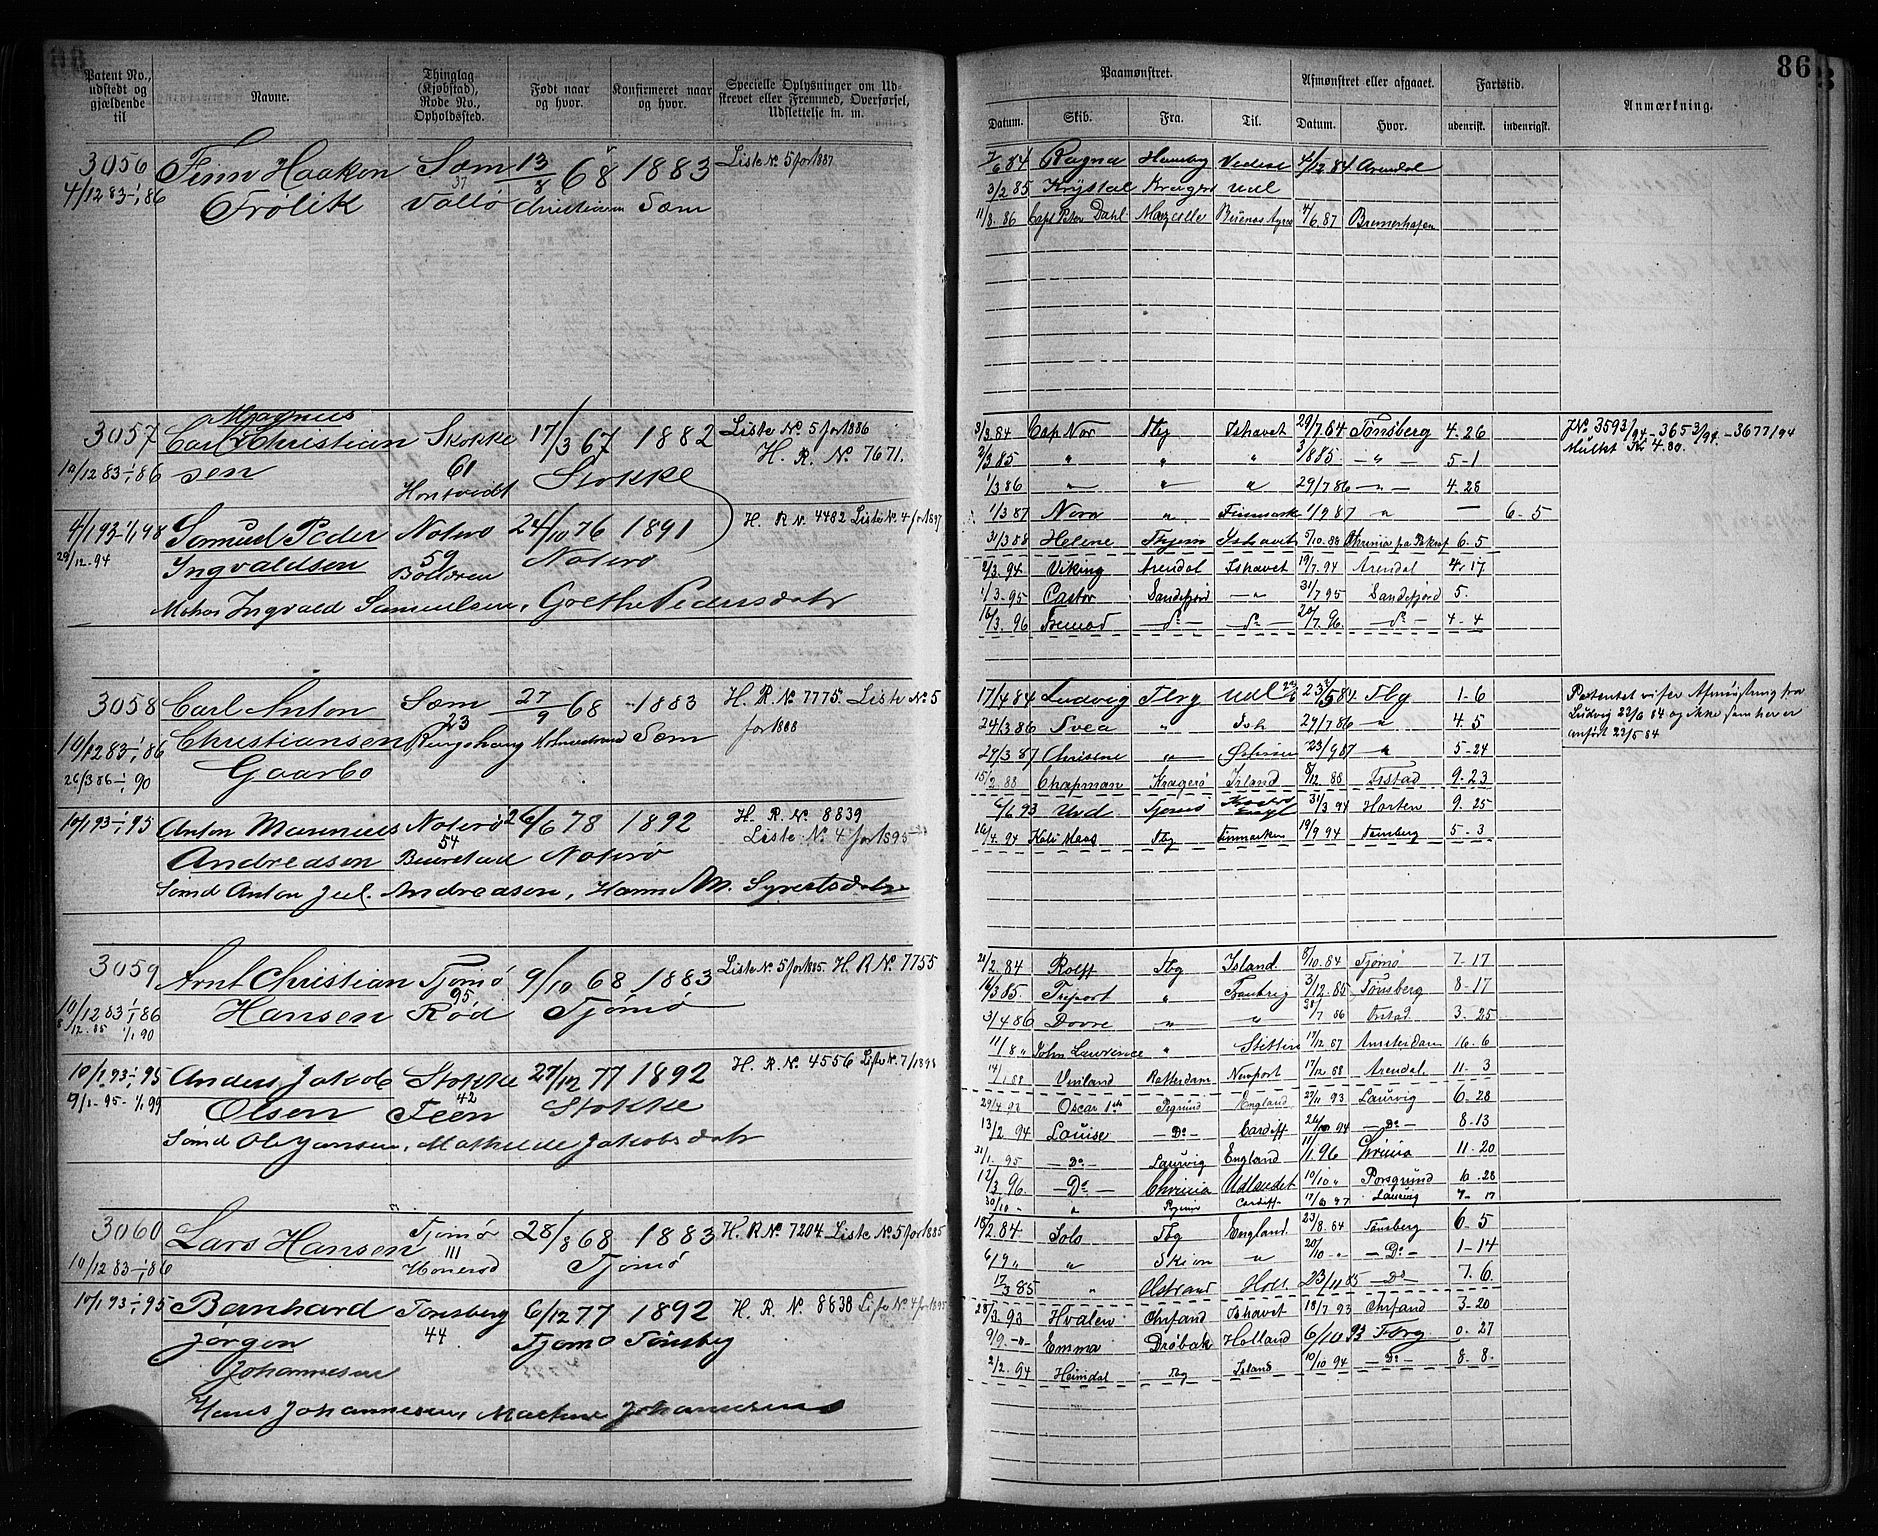 86
Patent No., udstedt og gjældende til
Navne.
Thinglag (Kjøbstad), Rode No., Opholdssted.
Født naar og hvor.
Konfirmeret naar og hvor.
Specielle Oplysninger om Udskrevet eller Fremmed, Overførsel, Udslettelse m. m.
Paamønstret.
Afmønstret eller afgaaet.
Fartstid.
Anmærkning.
Datum. Skib. Fra. Til. Datum. Hvor. udenrigsk. indenrigsk.
3056 Finn Haakon Sæm 13/8 68 1883 Liste No. 5 for 1887
4/12 83-1/1 86 Frølik 37 Vallø Christiania Sæm
7/6 84 Ragna Hamburg 4/12 84 Arendal
3/2 85 Krystal Kragerø Udl
11/8. 86 Capt Peter Dahl Buenos Ayres 4/6. 87 Bremerhafen
Magnus
3057 Carl Christian Stokke 17/3 67 1882 Liste No 5 for 1886
10/12 83-1/1 86 sen 61 Stokke H. R. No 7671.
4/1 93-1/1 98 Samuel Peder Noterø 24/10 76 1891 H. R. No. 4482 Liste No. 4 for 1897
29/12. 94 Ingvaldsen 59 Bolæren Noterø
Ingvald Samuelsen, Goethe Pedersdatr
3/3 84 Cap Nor Tbg Ishavet 29/7 84 Tønsberg 4. 26
2/3 85 " " " 3/8 85. - " - 5-1
1/3 86 " " " 29/7 86 - " - 4. 28
1/3 87 Nora " Finmark 1/9 87 " - 6-5
31/3 88 Helene Ishavet 5/10. 88 6. 5
2/3. 94 Viking Arendal Ishavet 19/7. 94 Arendal 4. 17
1/3. 95 Castor Sandefjord - " - 31/7 95 Sandefjord 5.
16/3. 96 - Do - - Do - 20/7. 96 - Do - 4-4
J.No 3593/94 - 3653/94 - 3677/94
Mulkt Kr 4.80.
3058 Carl Anton Sæm 27/9 68 1883 H. R. No. 7775. Liste No. 5
for 1888
10/12 83-1/1 86 Christiansen 23 Ringshaug Sæm
26/3 86-1/1 90 Gaarbo
10/1 93-1/1 95 Anton Marinius Noterø 26/6 78 1892 H. R. No. 8839
Andreasen 54 Noterø Liste No. 4 for 1895
Sønd Anton Jul. Andreasen, Hanne M. Syvertsdatr
17/4 84 Ludvig Tbrg Udl 23/5 84 Tbg 1-6
24/3 86 Svea " Ish 29/7 86 " 4. 5
24/3 87 Christine " 23/9 87 " 5-24
15/2. 88 Chapman Kragerø Island 8/12 88 9. 23
6/1 93 31/3 94 Horten 9. 25
16/4. 94 Tbg Finmarken 19/9 94 Tønsberg 5. 3
Patentet viser Afmønstring fra
Ludvig 22/6 84 og ikke som her er
anført 23/5 84
3059 Arnt Christian Tjømø 9/10 68 1883 Liste No. 5 for 1885. H. R No. 7755
10/12 83-1/1 86 Hansen 95 Rød Tjømø
8/12. 85 1/1 90
10/1 93-1/1 95 Anders Jakob Stokke 27/12 77 1892 H. R. No. 4556 Liste No. 7/1898
9/1-95-1/1 99 Olsen 42 Feen Stokke
Sønd Ole Jansen, Mathilde Jakobsdatr
21/2. 84 Rolff Tbg Island. 8/10. 84 Tjømø 7. 17
16/3 85 Freport " 31/12. 85 Tønsberg 8-17
3/4 86 Dovre " " 30/7 86 3. 25
11/8 " John Lawrence " Stettin 17/12. 87 Amsterdam 16. 6
14/1 88 Vinland Rotterdam Newport 17/12 88 Arendal 11. 3
29/4 93 Oscar 1ste England 27/11 93 Laurvig 6. 28
13/2. 94 Louise - Do - Cardiff 26/10 94 - Do - 8. 13
31/1. 95 - Do - Laurvig England 11/1. 96 Chrinia 11. 20
12/3 96. - Do - Chrinia Udlandet 10/10 " Porsgrund 6. 28
30/10 - " Cardiff 17/6 97 Laurvig 7- 17
3060 Lars Hansen Tjømø 28/8 68 1883 H. R No. 7204 Liste No. 5 for 1885
10/12 83-1/1 86 111 Tjømø
10/1 93-1/1 95 Bernhard Tønsberg 6/12 77 1892 H. R. No. 8838 Liste No. 4 for 1895
Jørgen 44 Tjømø Tønsbg
Johannesen
Hans Johannesen, Johannesen
19/2. 84 Solo Tbg England. 23/8. 84 Tønsberg 6. 5
6/9 " " Skien " 20/10 - " - Do - 1-14
17/3 85 " Holl 23/11 85 - Do - 7. 6
28/3. 93 Hvalen Chrsand Ishavet 18/7 93 Chrsand 3-20
9/9. - " Emma Drøbak Holland 6/10 93 Tbrg 0. 27
2/2. 94 Heimdal Tbg Island 10/10 94 - Do - 8. 8.